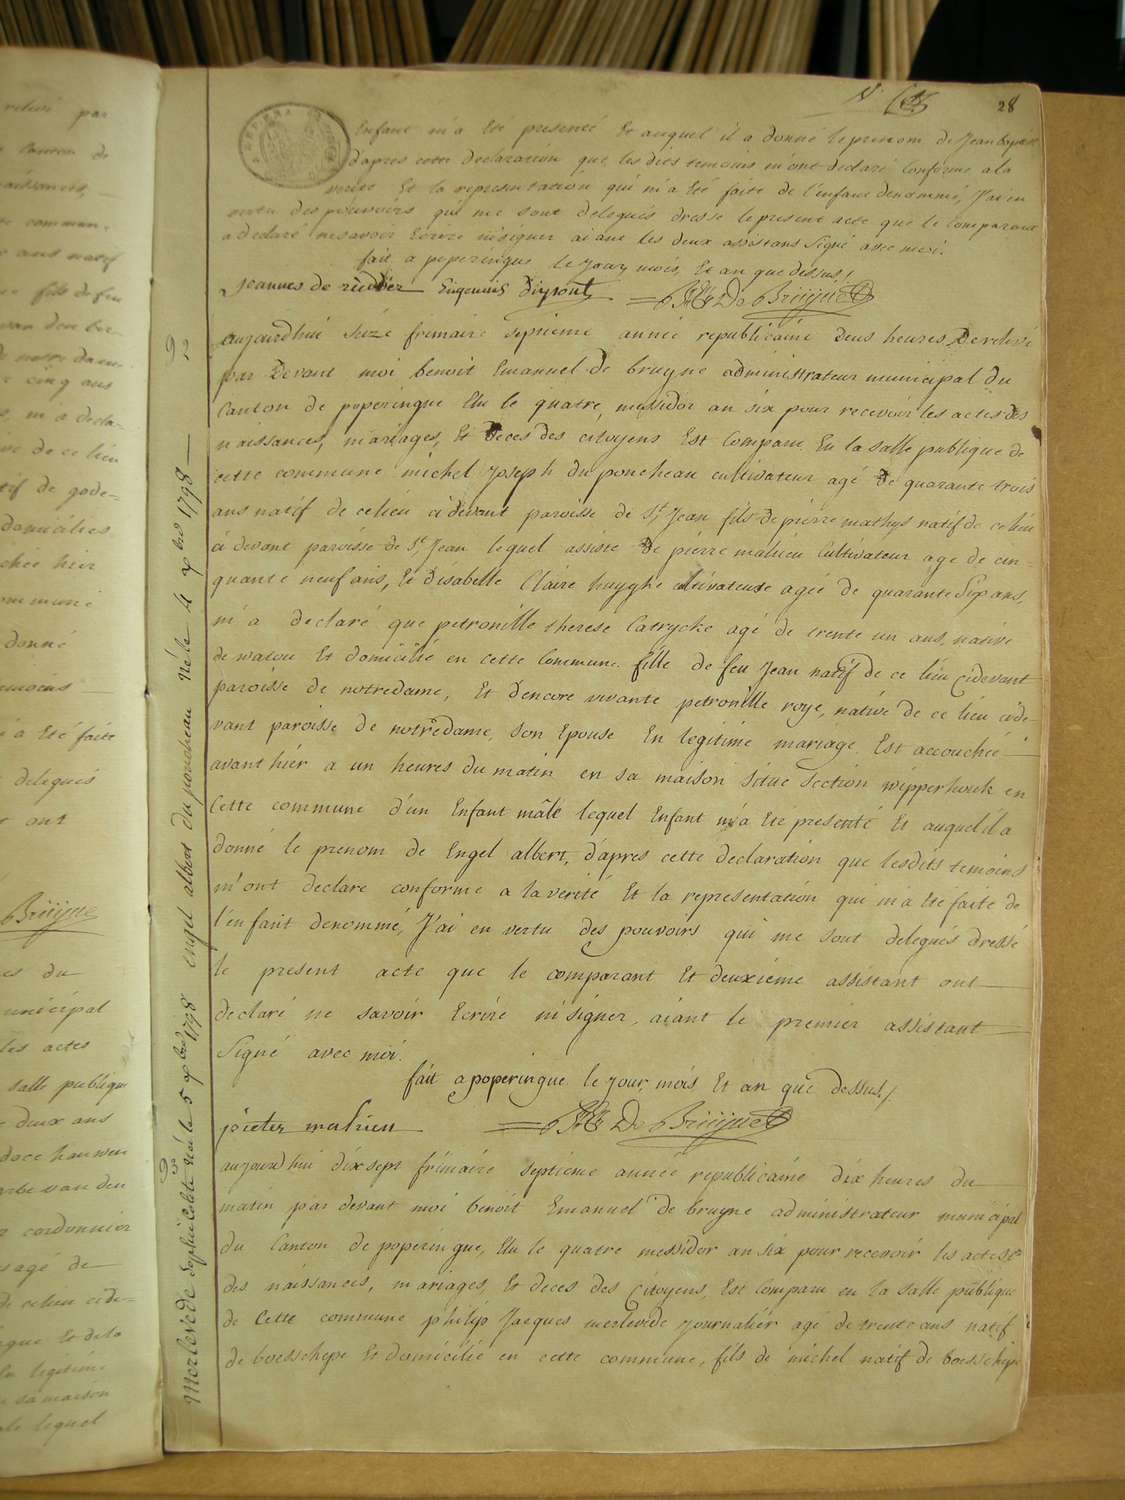 28
Enfant m'a été presenté Et auquel il a donné le prenom de Jean
d'apres cette declaration que les dits temoins m'ont declaré conforme a la
verité Et la representation qui m'a été faite de l'enfant denommé, J'ai en
vertu des pouvoirs qui me sont delegués dressé le present acte que le comparant
a declaré ne savoir Ecrire ni signer aiant les deux assistans signé avec moi.
fait a poperingue le jour, mois, Et an que dessus /
Joannes de ridder Eugenius Dupont De Bruijne
aujourdhui seize frimaire septieme année republicaine deus heures De relevé
par Devant moi benoit Emanuel de bruyne administrateur municipal du
Canton de poperingue Elu le quatre messidor an six pour recevoir les actes des
naissances, mariages, Et Deces des citoyens Est Comparu En la salle publique de
cette commune michel Joseph du poncheau cultivateur agé de quarante trois
ans natif de ce lieu ci devant paroisse de St. Jean fils de pierre mathys natif de ce lieu
ci devant paroisse de St. Jean lequel assisté de pierre mahieu Cultivateur age de cin-
quante neuf ans, Et D'isabelle Claire huyghe cultivateure agée de quarante Sip ans,
m'a declaré que petronille therese Catrycke agé de trente un ans, native
de watou Et domicilié en cette Commune fille de feu Jean natif de ce lieu cidevant
paroisse de notredame, Et D'encore vivante petronille roye, native de ce lieu cide-
vant paroisse de notredame, son Epouse En legitime mariage Est accouchée
avant hier a un heures du matin en sa maison située section wipperhouck en
Cette commune d'un Enfant mâle lequel Enfant m'a été presenté Et auquel il a
donné le prenom de Engel albert, d'apres cette declaration que lesdits temoins
m'ont declaré conforme a la verité Et la representation qui m'a été faite de
l'enfant denommé, J'ai en vertu des pouvoirs qui me sont delegués dressé
le present acte que le comparant Et deuxieme assistant ont
declaré ne savoir Ecrire ni signer, aiant le premier assistant
signé avec moi.
fait a poperingue le jour, mois Et an que dessus /
pieter mahieu De Bruijne
aujourdhui dix sept frimaire septieme année republicaine dix heures du
matin par devant moi benoit Emanuel de bruyne administrateur municipal
du Canton de poperingue, Elu le quatre messidor an six pour recevoir les actes
des naissances, mariages, Et deces des Citoyens, Est Comparu en la salle publique
de Cette commune philip Jacques merlevede Journalier agé de trente ans natif
de boeschepe Et domicilié en cette commune, fils de michel natif de boeschepe
engel albert du poncheau né le 4 xbre 1798
Merlevede Sophie né le 5 xbre 1798
relivé par
Canton de
naissances,
commun-
ans natif
fils de feu
van den
de notre dame
cinq ans
m'a decla-
de ce lieu
tif de gode-
domicilies
chée hier
commune
donné
temoins
m'a été faite
delegués
ont
Bruijne
es du
municipal
les actes
salle publique
deux ans
van den
cordonnier
agé de
de celieu cide-
Et de la
legitime
sa maison
lequel